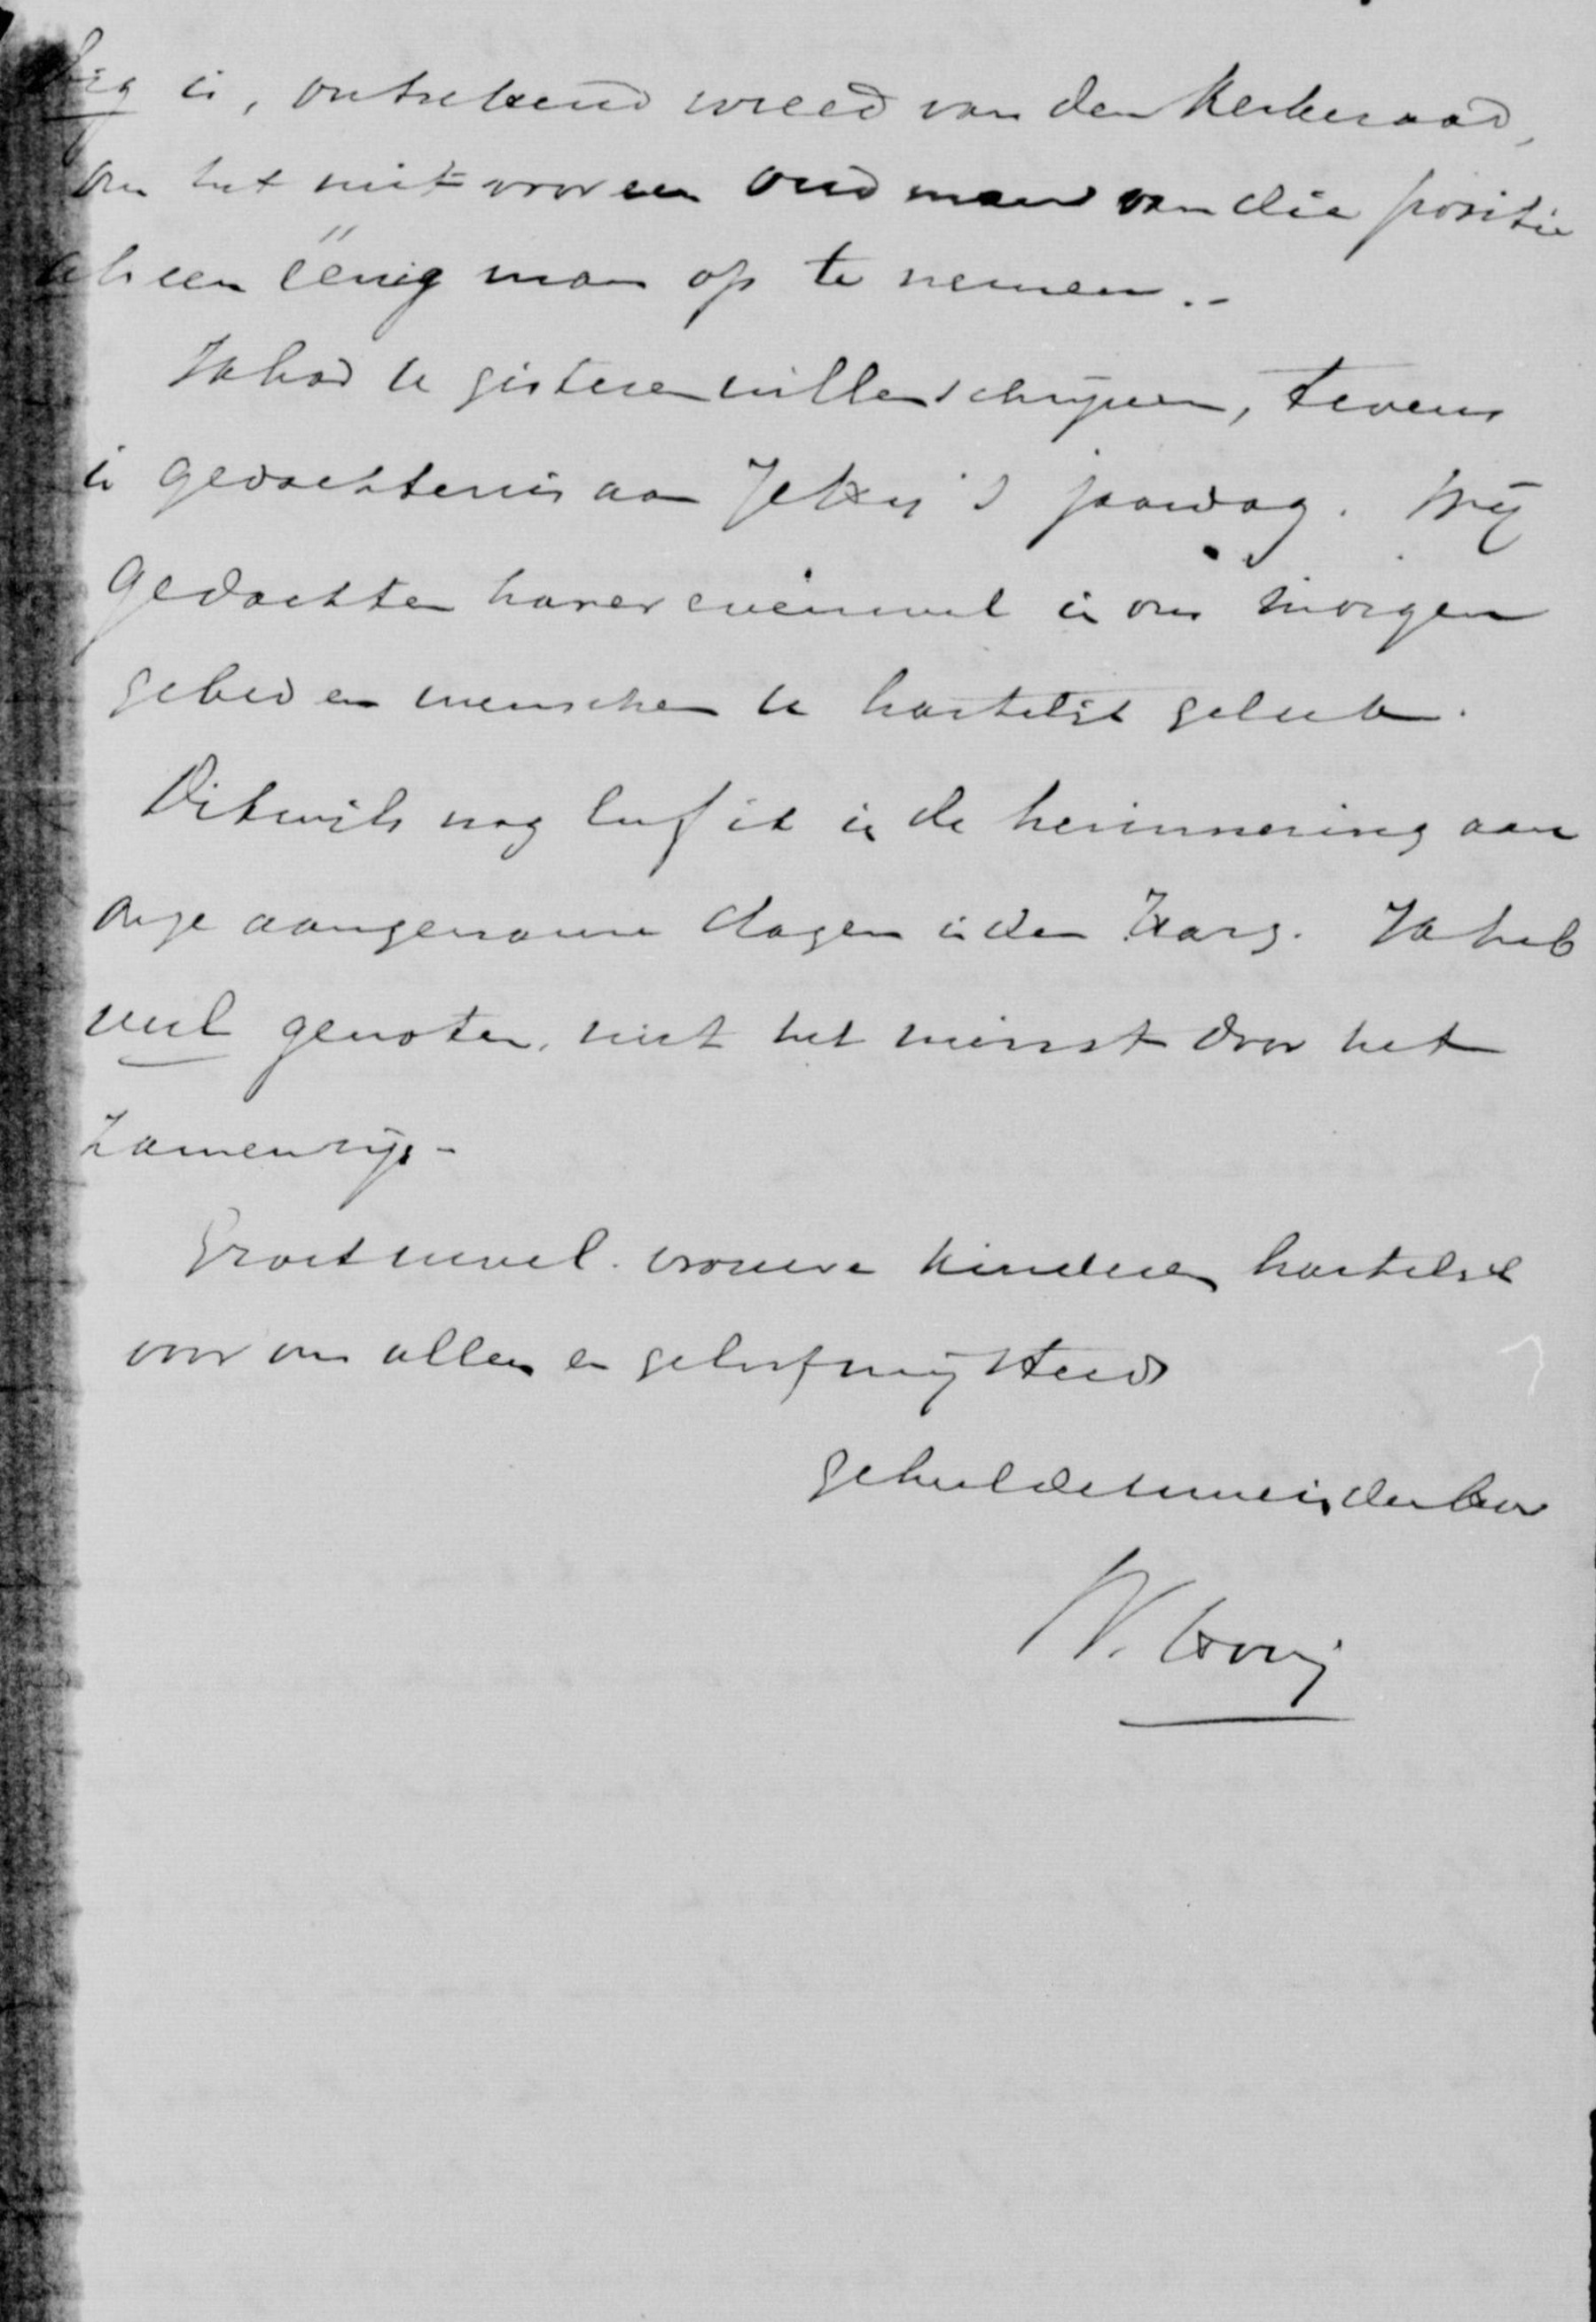 is, ontzettend wreed van den Kerkeraad,
om het niet voor een oud man van die positie
als een éénig man op te nemen.-
Ik had u gisteren willen schrijven, tevens
in gedachtenis aan Jetty's jaardag. Wij
gedachten harer evenwel in ons morgen
gebed en wenschen u hartelijk geluk.
Dikwijls nog leef ik in de herinnering aan
onze aangename dagen in den Harz. Ik heb
veel genoten, niet het minst door het
zamenzijn-
Groet uwe vrouw en kinderen hartelijk
voor ons allen en geloof mij steeds
geheel de uwe in den Heer
W. Hovy